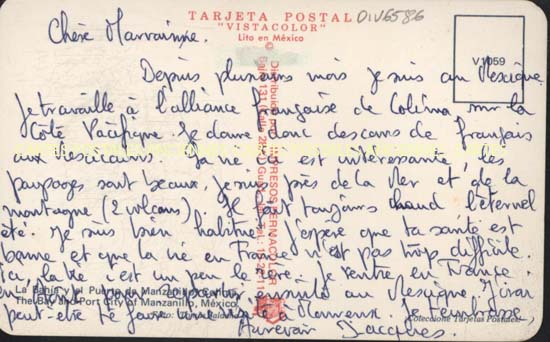 TARJETA POSTAL
"VISTACOLOR"
Lito en México
DIV6586
V1059
Chère Marraine.
Depuis plusieurs mois je suis au Mexique
Je travaille à l'alliance française de Colima sur la
Côte Pacifique. Je donne donc des cours de français
aux Mexicains. Ma vie ici est intéressante, les
paysages sont beaux, je suis près de la Mer et de la
montagne (2 volcans). Il fait toujours chaud l'éternel
été. Je suis bien habitué. J'espère que ta santé est
bonne et que la vie en France n'est pas trop difficile.
Ici, la vie c'est un peu le rêve. Je rentre en France
en pour repartir ensuite au Mexique J'irai
peut-être te faire une visite à . Je t'embrasse,
Aurevoir Jacques.
La Bahía y el Puerto de Manzanillo,
The Bay and Port City of Manzanillo, México.
Coleccione Tarjetas Postales